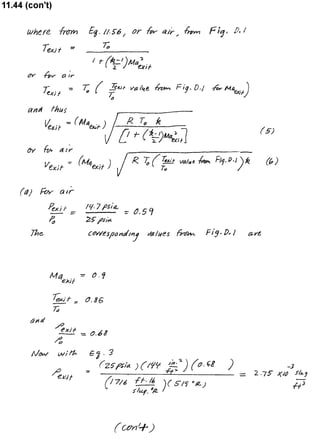 11.44 (con't)
where from Eq. 11.56, or for air, from Fig. D.1
T_exit = T_o / (1 + ((k-1)/2) Ma²_exit)
or for air
T_exit = T_o ( T_exit/T_o value from Fig. D.1 for Ma_exit )
and thus
V_exit = (Ma_exit) √( R T_o k / [1 + ((k-1)/2) Ma²_exit] ) (5)
or for air
V_exit = (Ma_exit) √( R T_o ( T_exit/T_o value from Fig. D.1 ) k ) (6)
(a) For air
P_exit/P_o = 14.7 psia / 25 psia = 0.59
The corresponding values from Fig. D.1 are
Ma_exit = 0.9
T_exit/T_o = 0.86
and
ρ_exit/ρ_o = 0.68
Now with Eq. 3
ρ_exit = (25 psia)(144 in.²/ft²)(0.68) / ((1716 ft·lb/slug·°R)(519 °R)) = 2.75 x10⁻³ slug/ft³
(con't)